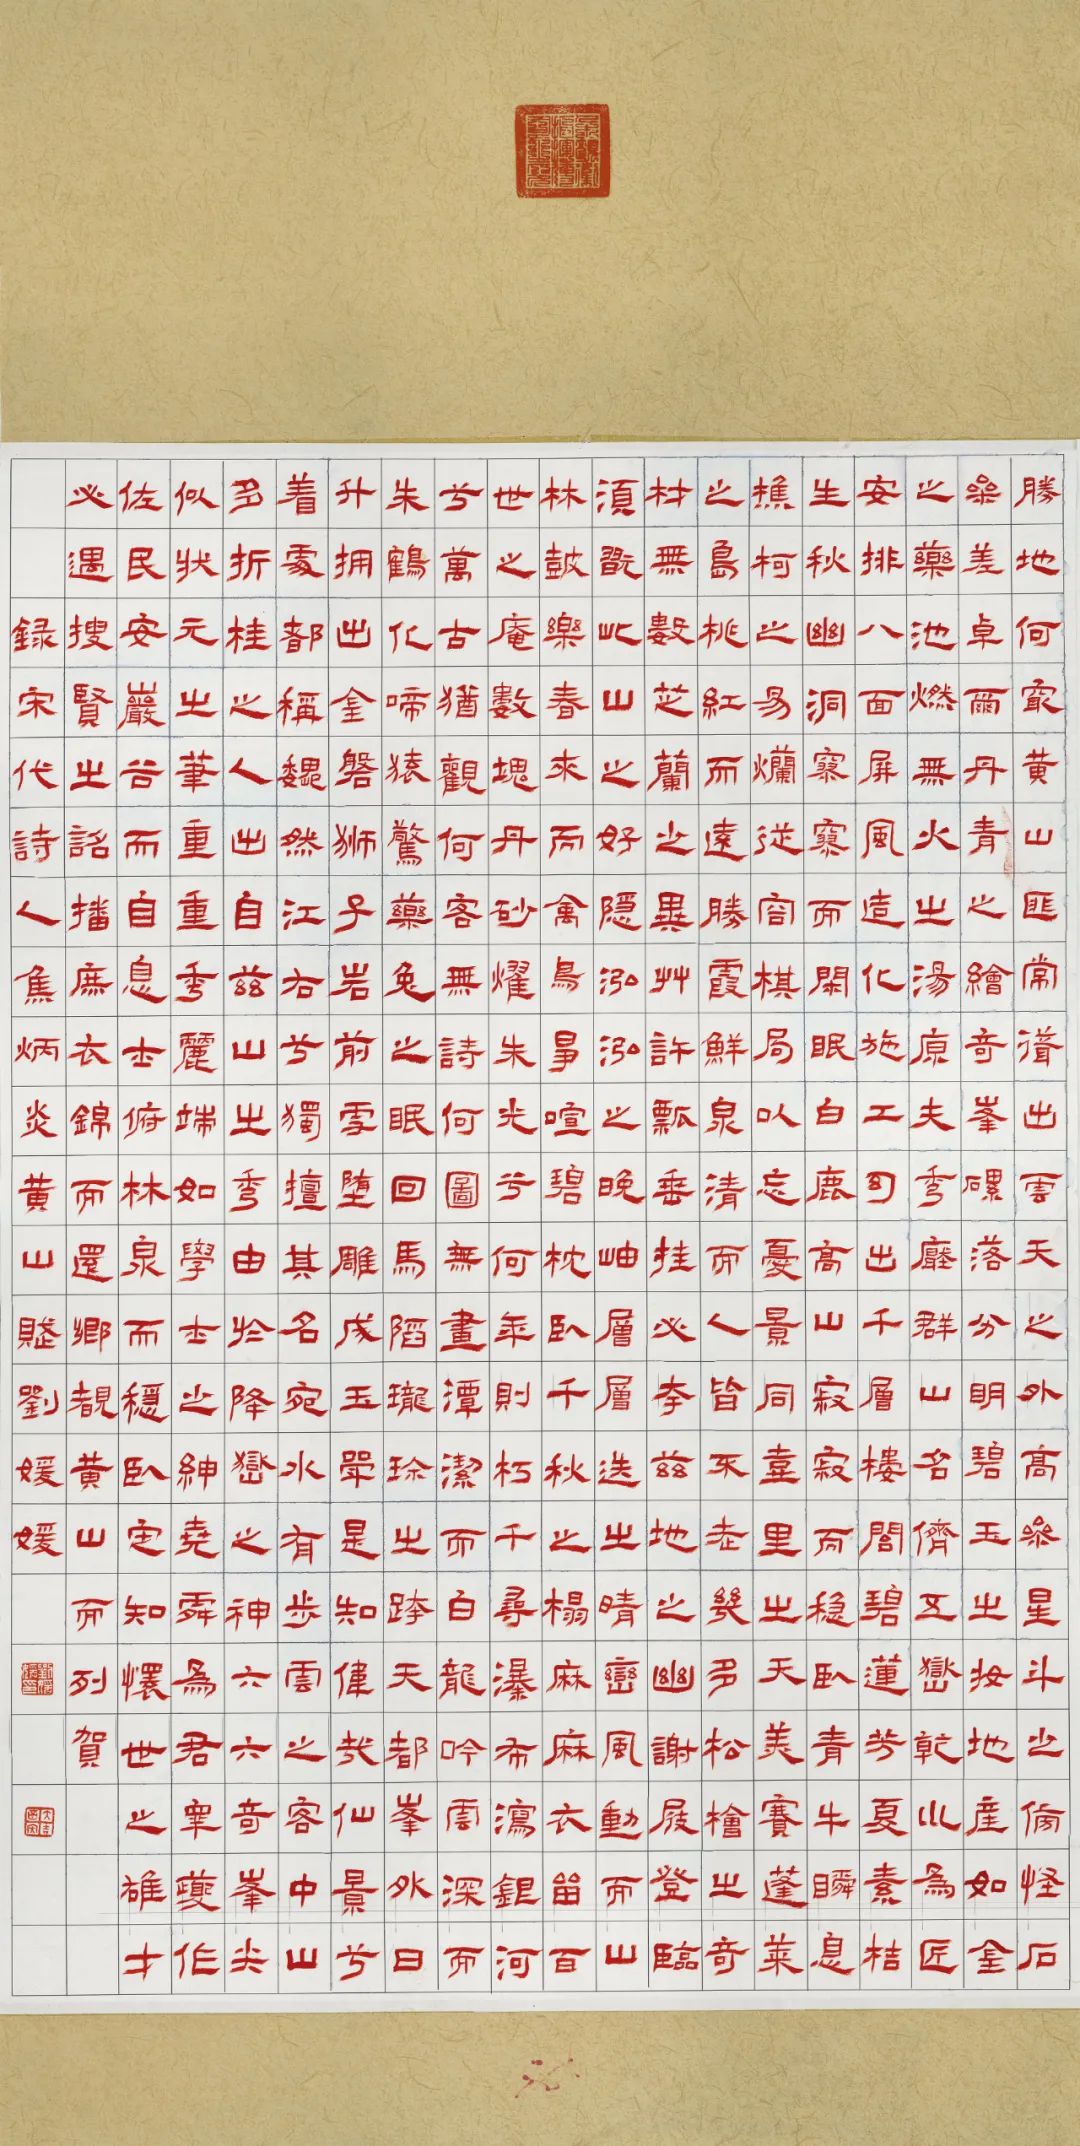 勝地何㝡黃山匪常出雲天之外高參星斗之傍怪石
參差卓爾丹青之繪奇峯磥落分明碧玉之妝地產如金
之藥池燃無火之湯原夫秀壓群山名儕五嶽乾以為匠
安排八面屏風造化施工出千層樓閣碧蓮芳夏素桔
生秋幽洞寥寥而閑眠白鹿高山寂寂而穏臥青牛瞬息
樵柯之易爛從容棋局以忘憂景同臺里之天美賽蓬萊
之島桃紅而遠勝霞鮮泉清而人皆不老幾多松檜之奇
材無數芝蘭之異艸許瓢垂挂必李茲地之幽謝屐登臨
須翫此山之好隱泓泓之晚岫層層迭之晴巒風動而山
林鼓樂春來而禽鳥爭喧碧枕臥千秋之榻麻麻衣留百
世之庵數塊丹砂燿朱光兮何年則朽千尋瀑布瀉銀河
兮萬古猶觀何客無詩何圖無畫潭潔而白龍吟雲深而
朱鶴化啼猿驚藥兔之眠回馬蹈瓏琮之跨天都峯外日
升拥出金磐狮子岩前雪堕雕成玉斝是知偉哉仙景兮
着處都稱巍然江右兮獨擅其名宛水有步雲之客中山
多折桂之人出自茲山之秀由於降嶽之神六六奇峯尖
似狀元之筆重重秀麗端如學士之紳堯舜為君皐夔作
佐民安巖谷而自息士俯林泉而穩臥定知懷世之雄才
必遇搜賢之詔播庶衣錦而還鄉覩黃山而列賀
錄宋代詩人焦炳炎黃山賦劉媛媛